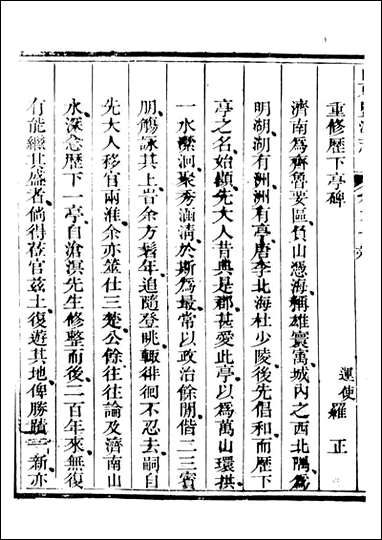 重修歷下亭碑
運使羅正
濟南為齊魯要區負山憑海稱雄寰寓城內之西北隅為
明湖湖有洲洲有亭唐李北海杜少陵後先倡和而歷下
亭之名始顯先大人昔典是郡甚愛此亭以為萬山環拱
一水瀠洄聚秀涵淸於斯為最常以政治餘閒偕二三賓
朋觴詠其上當余方髫年追隨登眺輙徘徊不忍去嗣自
先大人移官兩淮余亦筮仕三楚公餘往往論及濟南山
水深念歷下一亭自滄溟先生修整而後二百年來無復
有能繼其盛者倘得莅官茲土復遊其地俾勝蹟一新亦